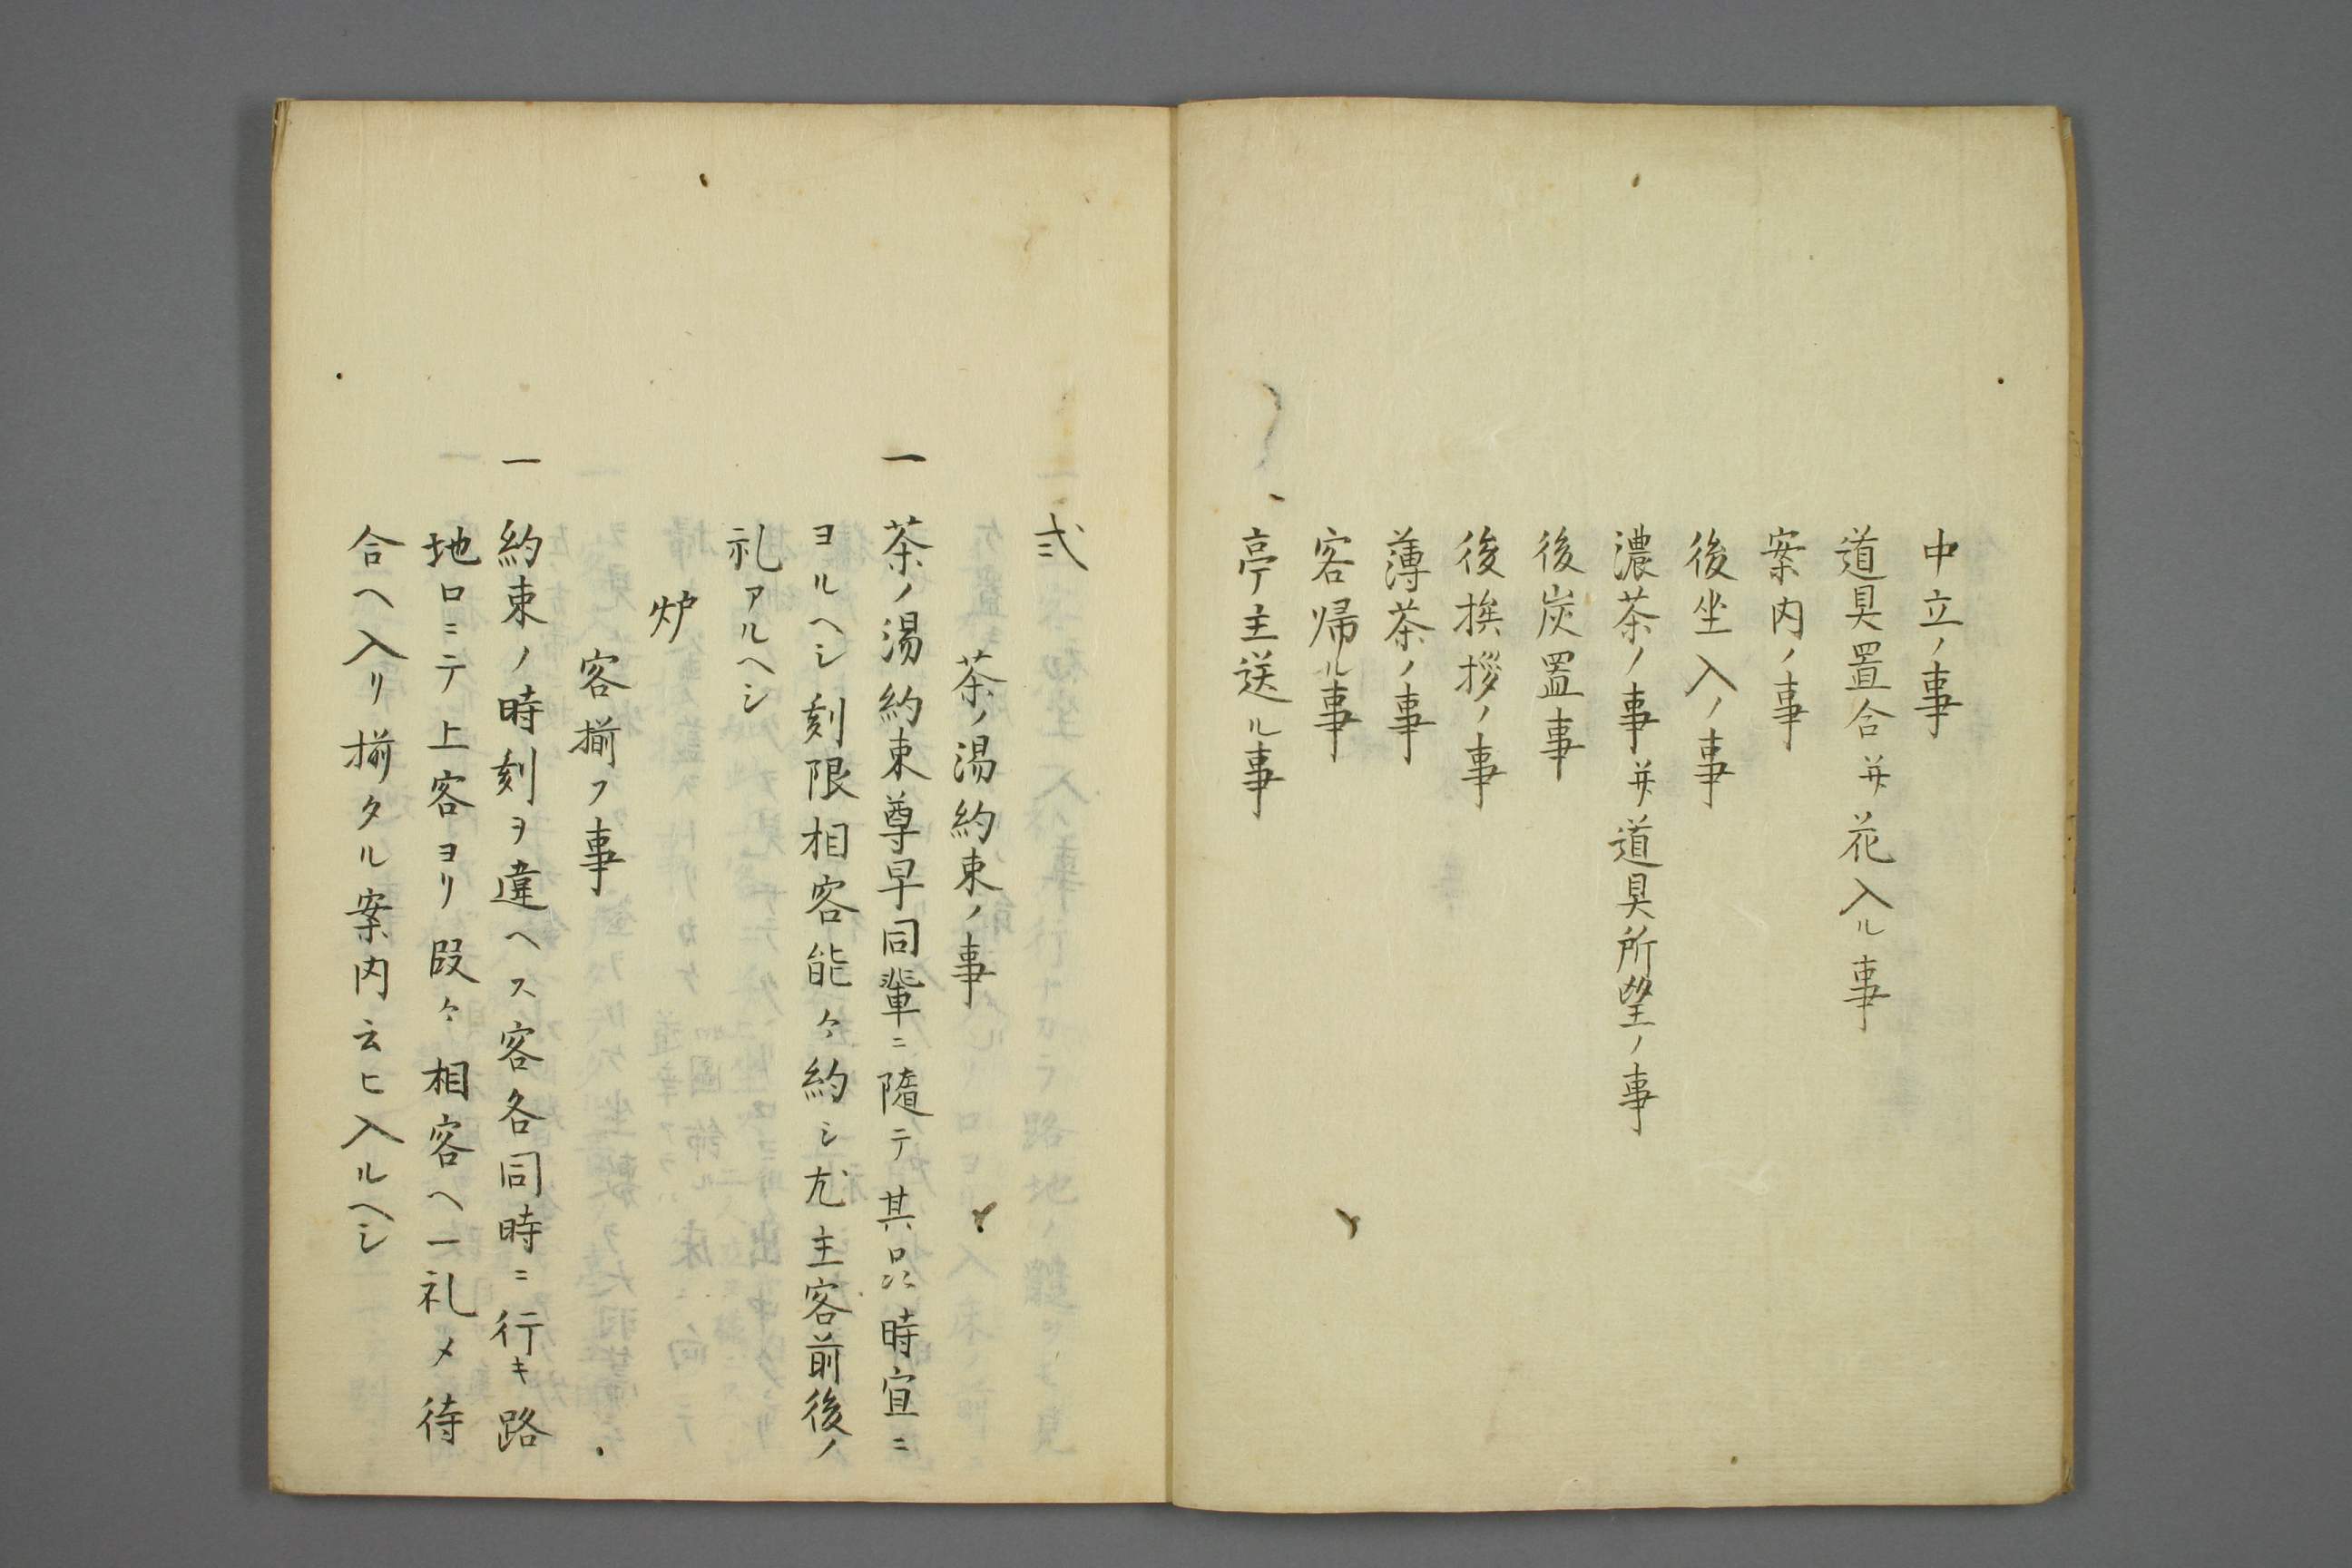 中立ノ事
道具置合并花入ル事
案内ノ事
後坐入ノ事
濃茶ノ事并道具所望ノ事
後炭置事
後挨拶ノ事
薄茶ノ事
客帰ル事
亭主送ル事
弍
茶ノ湯約束ノ事
一 茶ノ湯約束尊早同輩ニ隨テ其品時宜ニ
ヨルヘシ刻限相客能々約シ尤主客前後ノ
礼アルヘシ
炉
客揃フ事
一 約束ノ時刻ヲ違ヘス客各同時ニ行キ路
地口ニテ上客ヨリ段々相客ヘ一礼メ待
合ヘ入リ揃タル案内云ヒ入ルヘシ